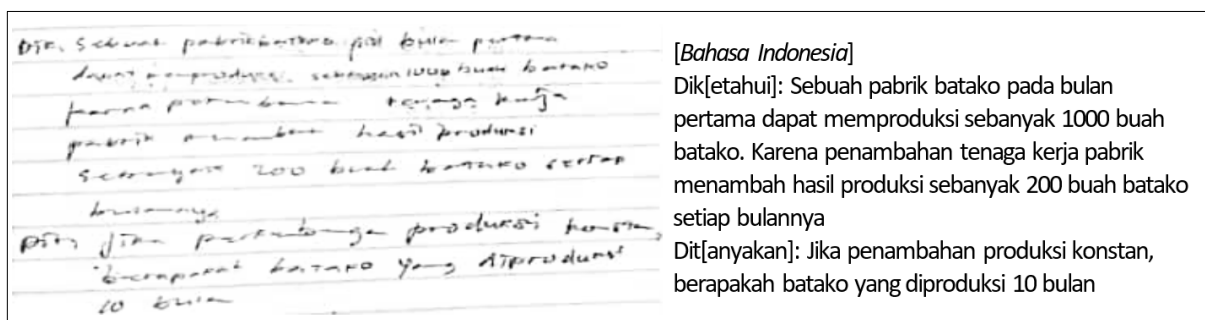 Dik, Sebuah pabrik batako pd bulan pertama
dapat memproduksi sebanyak 1000 buah batako
karna tenaga kerja
pabrik menambah hasil produksi
sebanyak 200 buah batako setiap
bulannya
Dit, Jika produksi
berapakah batako yang diproduksi
10 bulan
[Bahasa Indonesia]
Dik[etahui]: Sebuah pabrik batako pada bulan
pertama dapat memproduksi sebanyak 1000 buah
batako. Karena penambahan tenaga kerja pabrik
menambah hasil produksi sebanyak 200 buah batako
setiap bulannya
Dit[anyakan]: Jika penambahan produksi konstan,
berapakah batako yang diproduksi 10 bulan